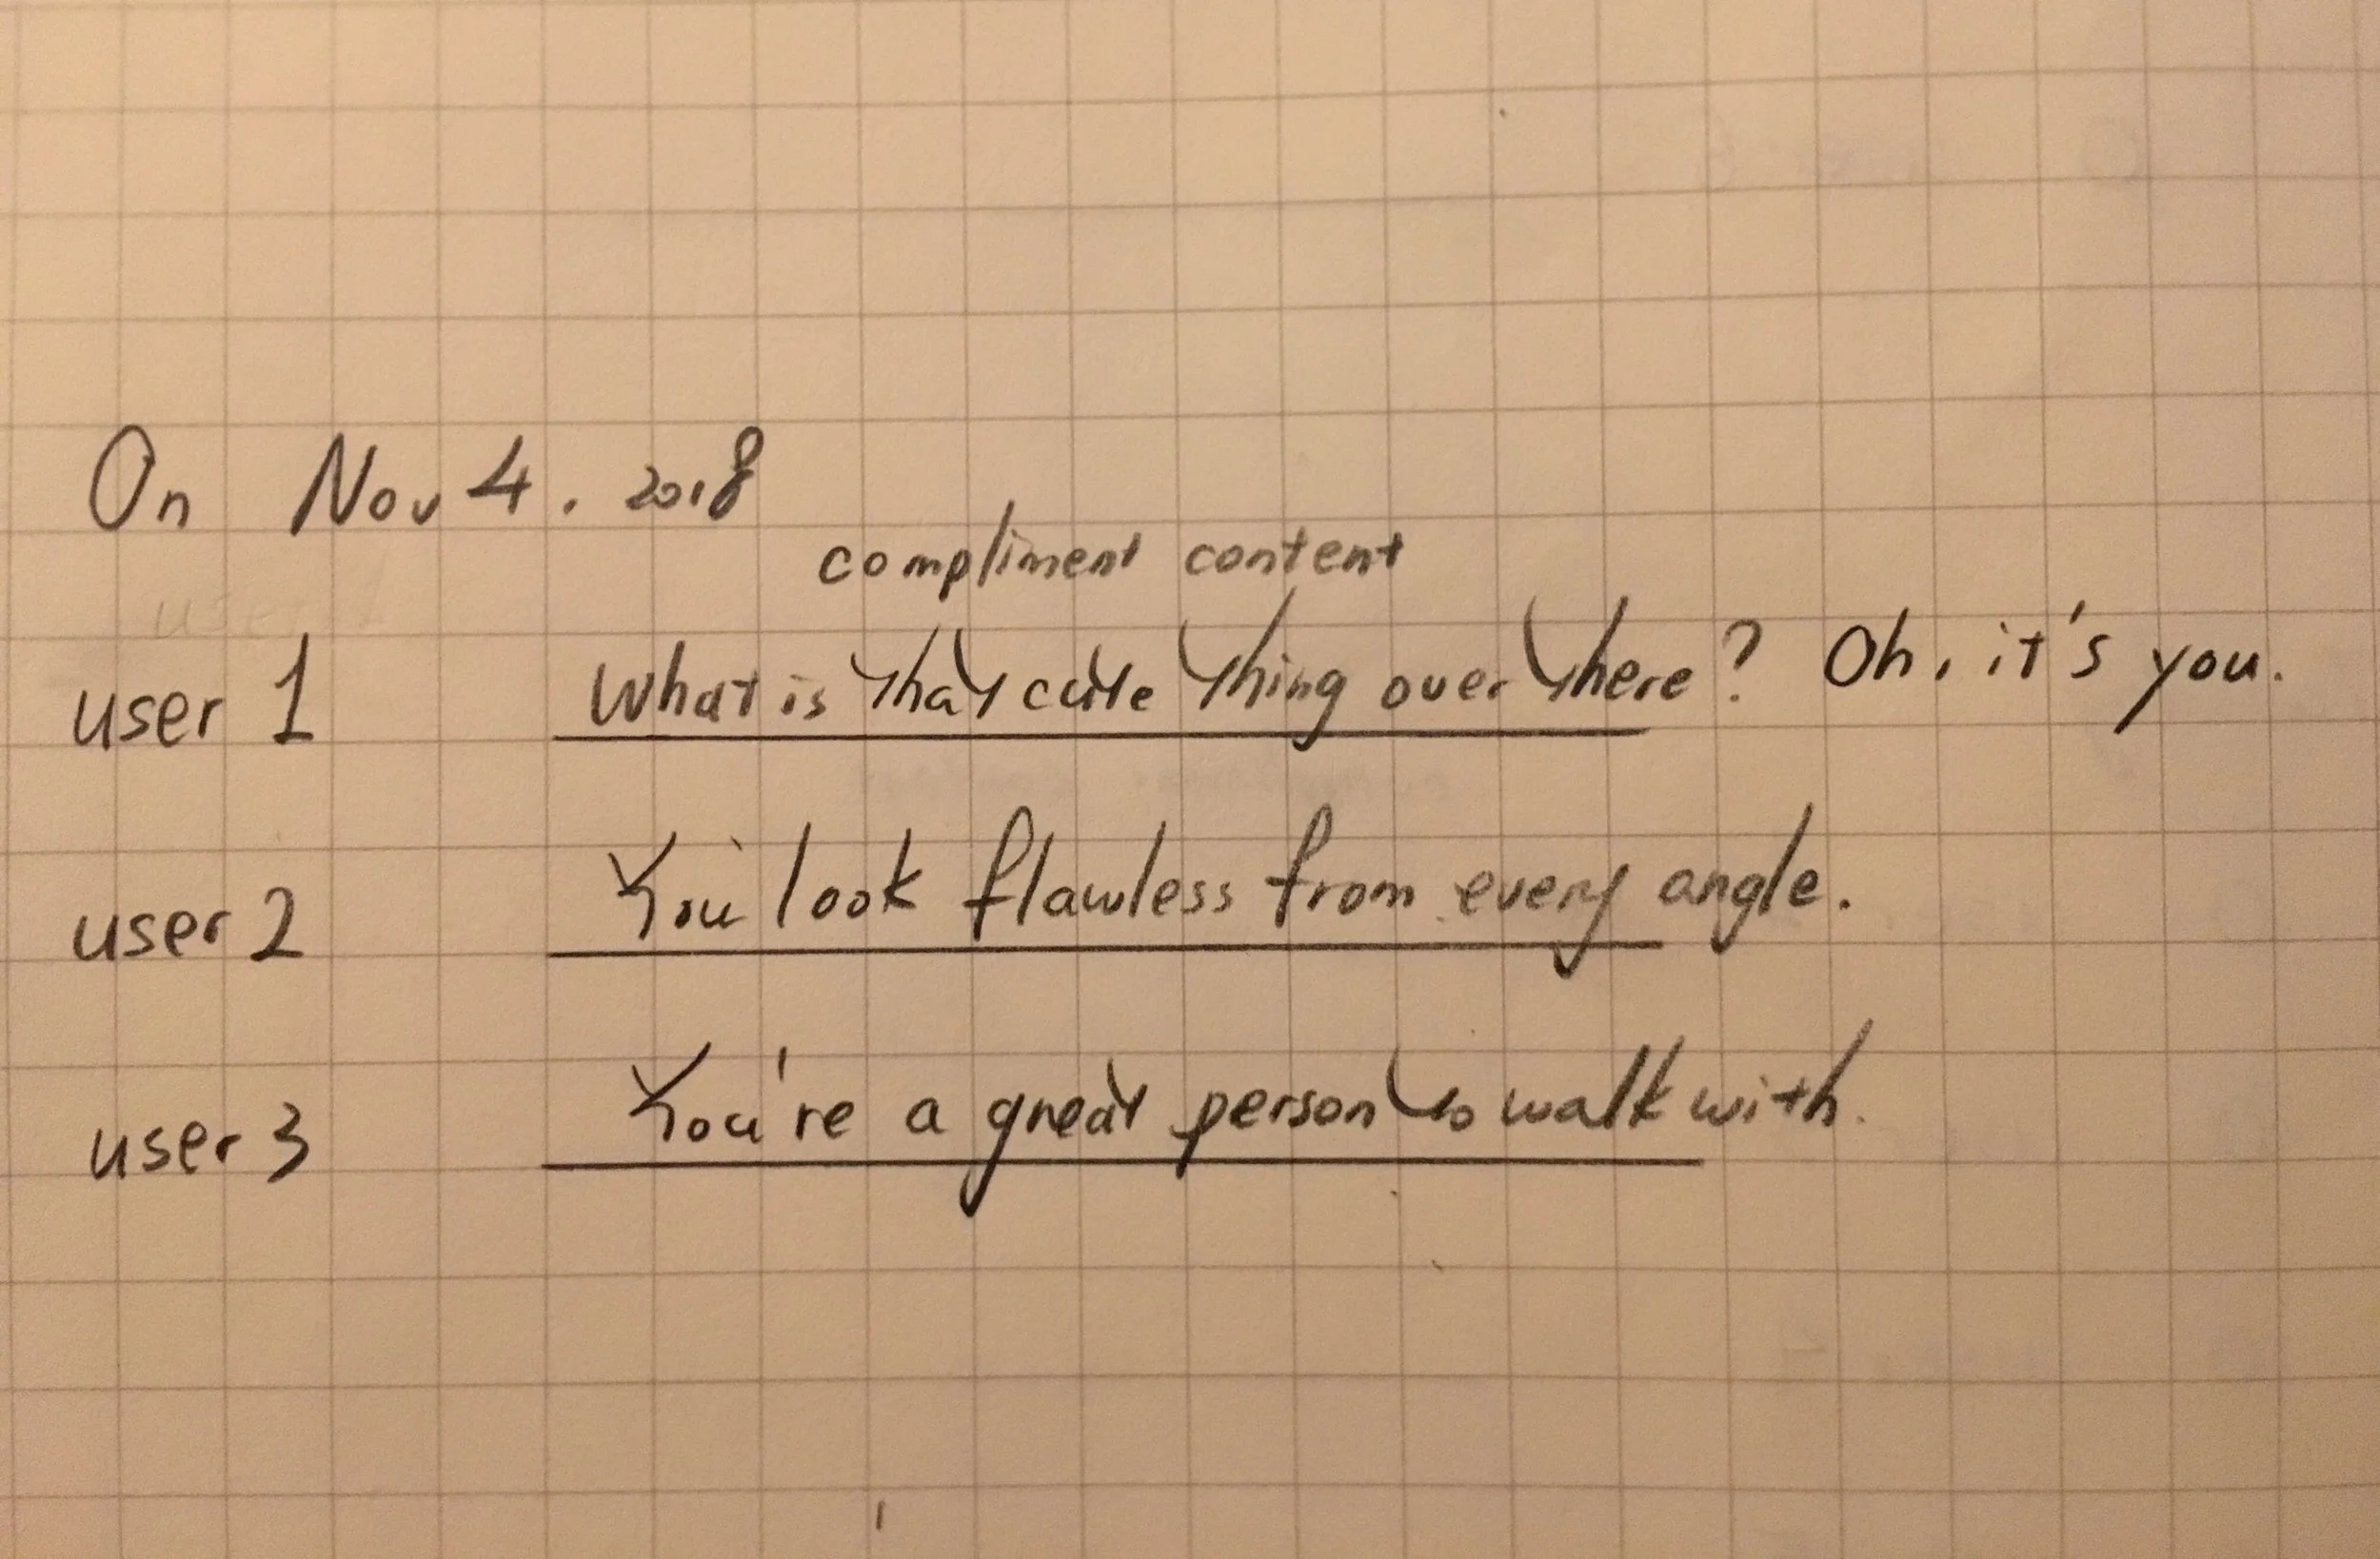 On Nov 4. 2018
compliment content
user 1 What is that cute thing over there? Oh, it's you.
user 2 You look flawless from every angle.
user 3 You're a great person to walk with.